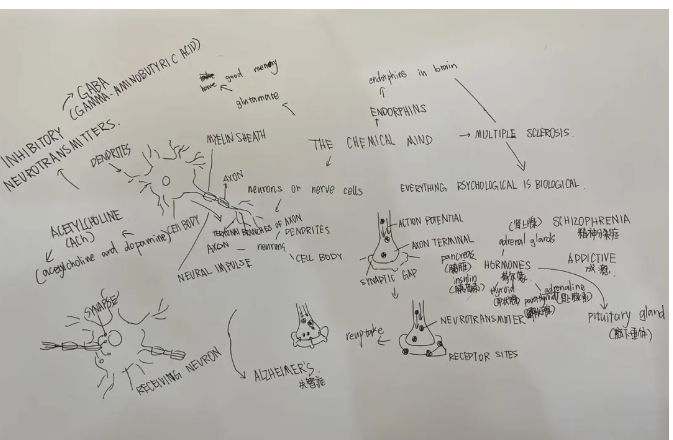 GABA
(GAMMA-AMINOBUTYRIC ACID)
INHIBITORY
NEUROTRANSMITTERS.
good memory
glutamate
endorphins in brain
ENDORPHINS
THE CHEMICAL MIND
MULTIPLE SCLEROSIS.
MYELIN SHEATH
DENDRITES
AXON
neurons or nerve cells
EVERYTHING PSYCHOLOGICAL IS BIOLOGICAL.
ACETYLCHOLINE
(ACh)
(acetylcholine and dopamine)
CELL BODY
TERMINAL BRANCHES OF AXON
DENDRITES
AXON
neurons
CELL BODY
NEURAL IMPULSE
ACTION POTENTIAL
AXON TERMINAL
SYNAPTIC GAP
(肾上腺)
adrenal glands
SCHIZOPHRENIA
精神分裂症
pancreas
(胰腺)
insulin
(胰岛素)
HORMONES
荷尔蒙
ADDICTIVE
thyroid
(甲状腺)
parathyroid
adrenaline
(肾上腺素)
pituitary gland
(脑下垂体)
SYNAPSE
RECEIVING NEURON
ALZHEIMER'S
reuptake
NEUROTRANSMITTER
RECEPTOR SITES